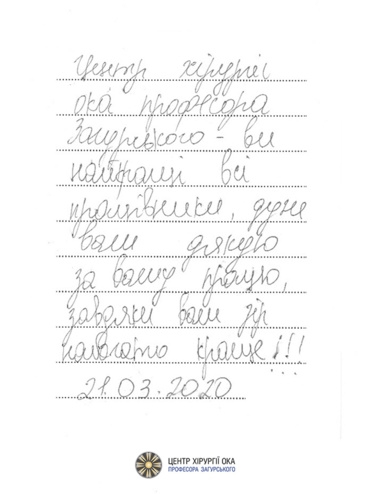 Центр хірургії
ока професора
Загурського - ви
найкращі всі
працівники, дуже
вам дякую
за вашу працю,
завдяки вам зір
набагато краще!!!
21.03.2020
ЦЕНТР ХІРУРГІЇ ОКА
ПРОФЕСОРА ЗАГУРСЬКОГО